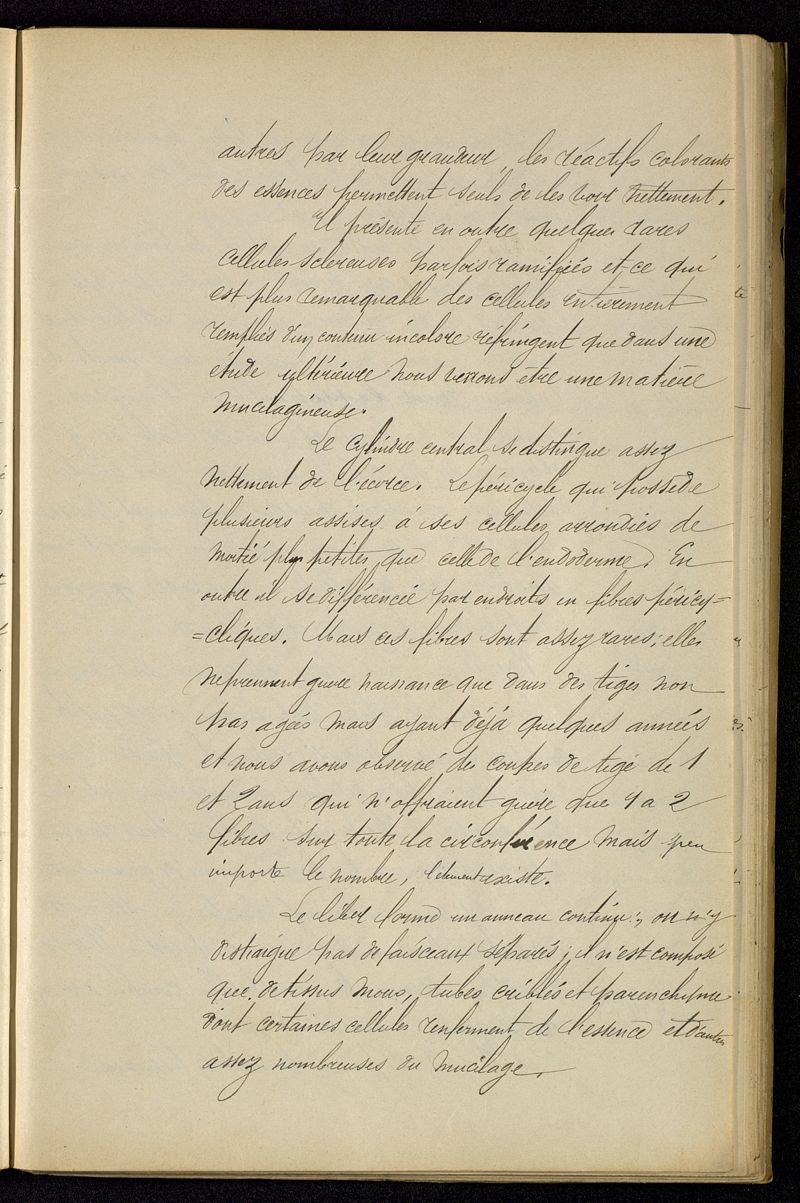 autres par leur grandeur, les réactifs colorants
des essences permettent seuls de les voir nettement.
Il présente en outre quelques rares
cellules scléreuses parfois ramifiées et ce qui
est plus remarquable des cellules entièrement
remplies d'un contenu incolore réfringent que dans une
étude ultérieure nous verrons etre une matière
mucilagineuse.
Le cylindre central se distingue assez
nettement de l'écorce. Le péricycle qui possède
plusieurs assises à ses cellules arrondies de
moitié plus petites que celle de l'endoderme. En
outre il se différencie par endroits en fibres péricy=
=cliques. Mais ces fibres sont assez rares, elles
ne prennent guère naissance que dans des tiges non
pas agées mais ayant déjà quelques années
et nous avons observé des coupes de tige de 1
et 2 ans qui n'offraient guère que 1 a 2
fibres sur toute la circonférence mais peu
importe le nombre, l'élement existe.
Le liber forme un anneau continu, on n'y
distingue pas de faisceaux séparés ; il n'est composé
que de tissus mous, tubes criblés et parenchyme
dont certaines cellules renferment de l'essence et d'autres
assez nombreuses du mucilage.